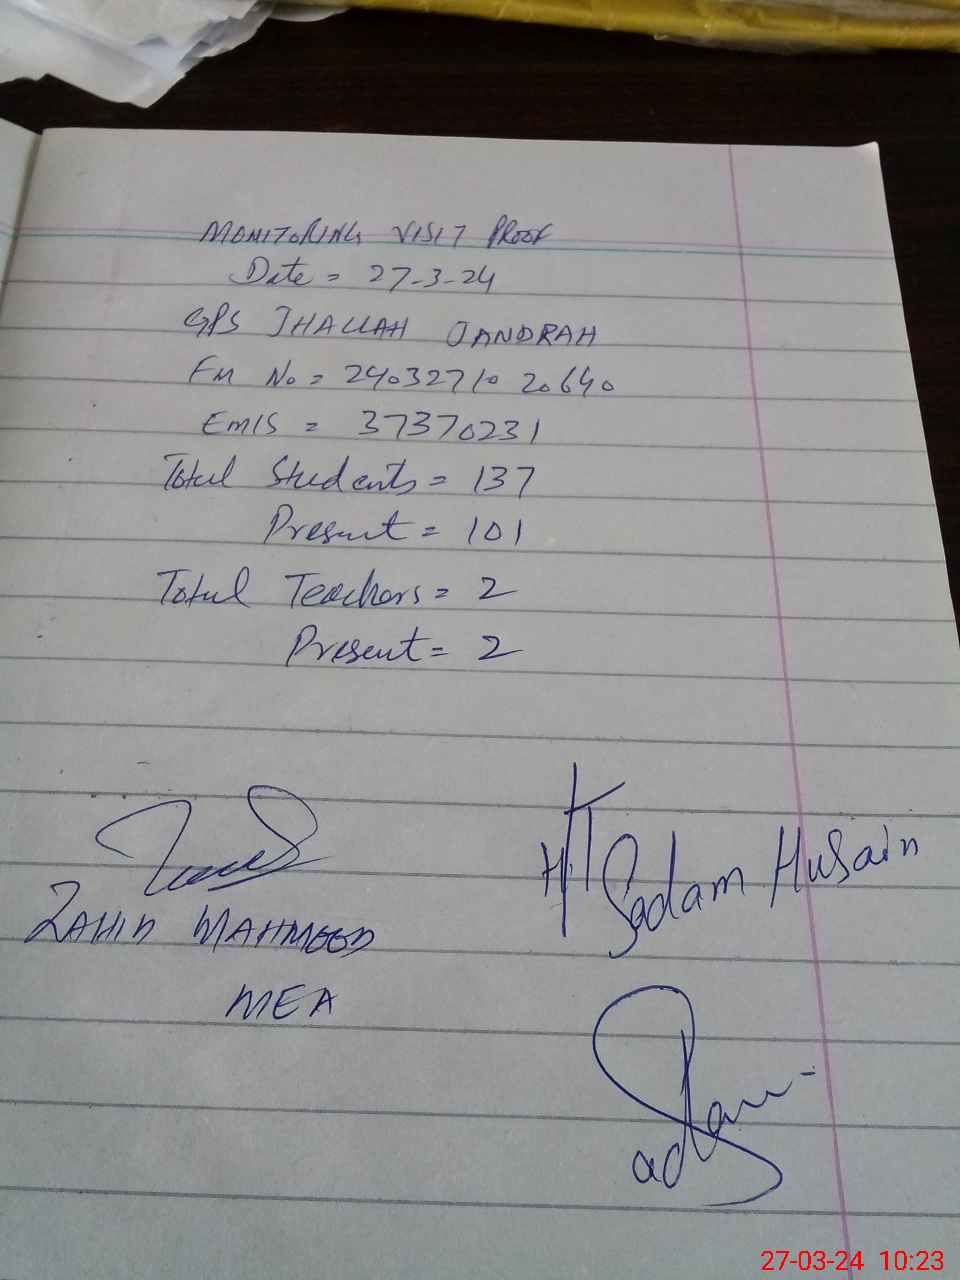 MONITORING VISIT PROOF
Date = 27-3-24
GPS JHALLAH JANDRAH
FM No = 240327102640
EMIS = 37370231
Total Students = 137
Present = 101
Total Teachers = 2
Present = 2
H.T Sadam Husain
ZAHID MAHMOOD
MEA
Sadam
27-03-24 10:23